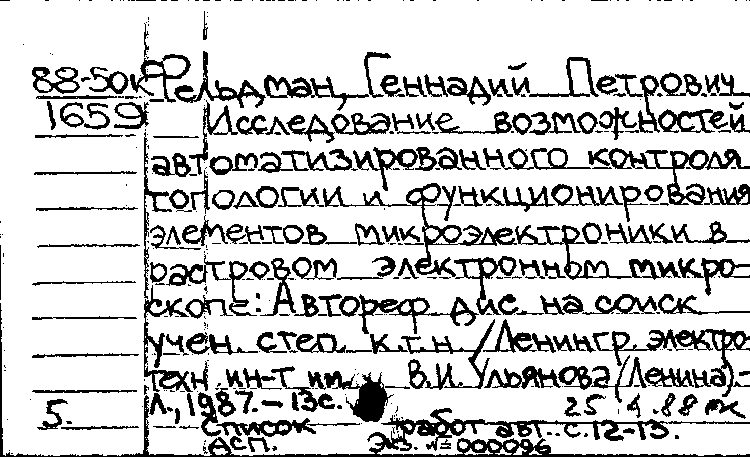 88-50к Фельдман, Геннадий Петрович
1659 Исследование возможностей
автоматизированного контроля
топологии и функционирования
элементов микроэлектроники в
растровом электронном микро-
скопе: Автореф дис. на соиск
учен. степ. к.т.н. /Ленингр. электро-
техн. ин-т им. В.И. Ульянова (Ленина).-
Л., 1987.-13с. 25 4.88
5. Список работ авт.: с.12-13.
Асп. Экз. №000096